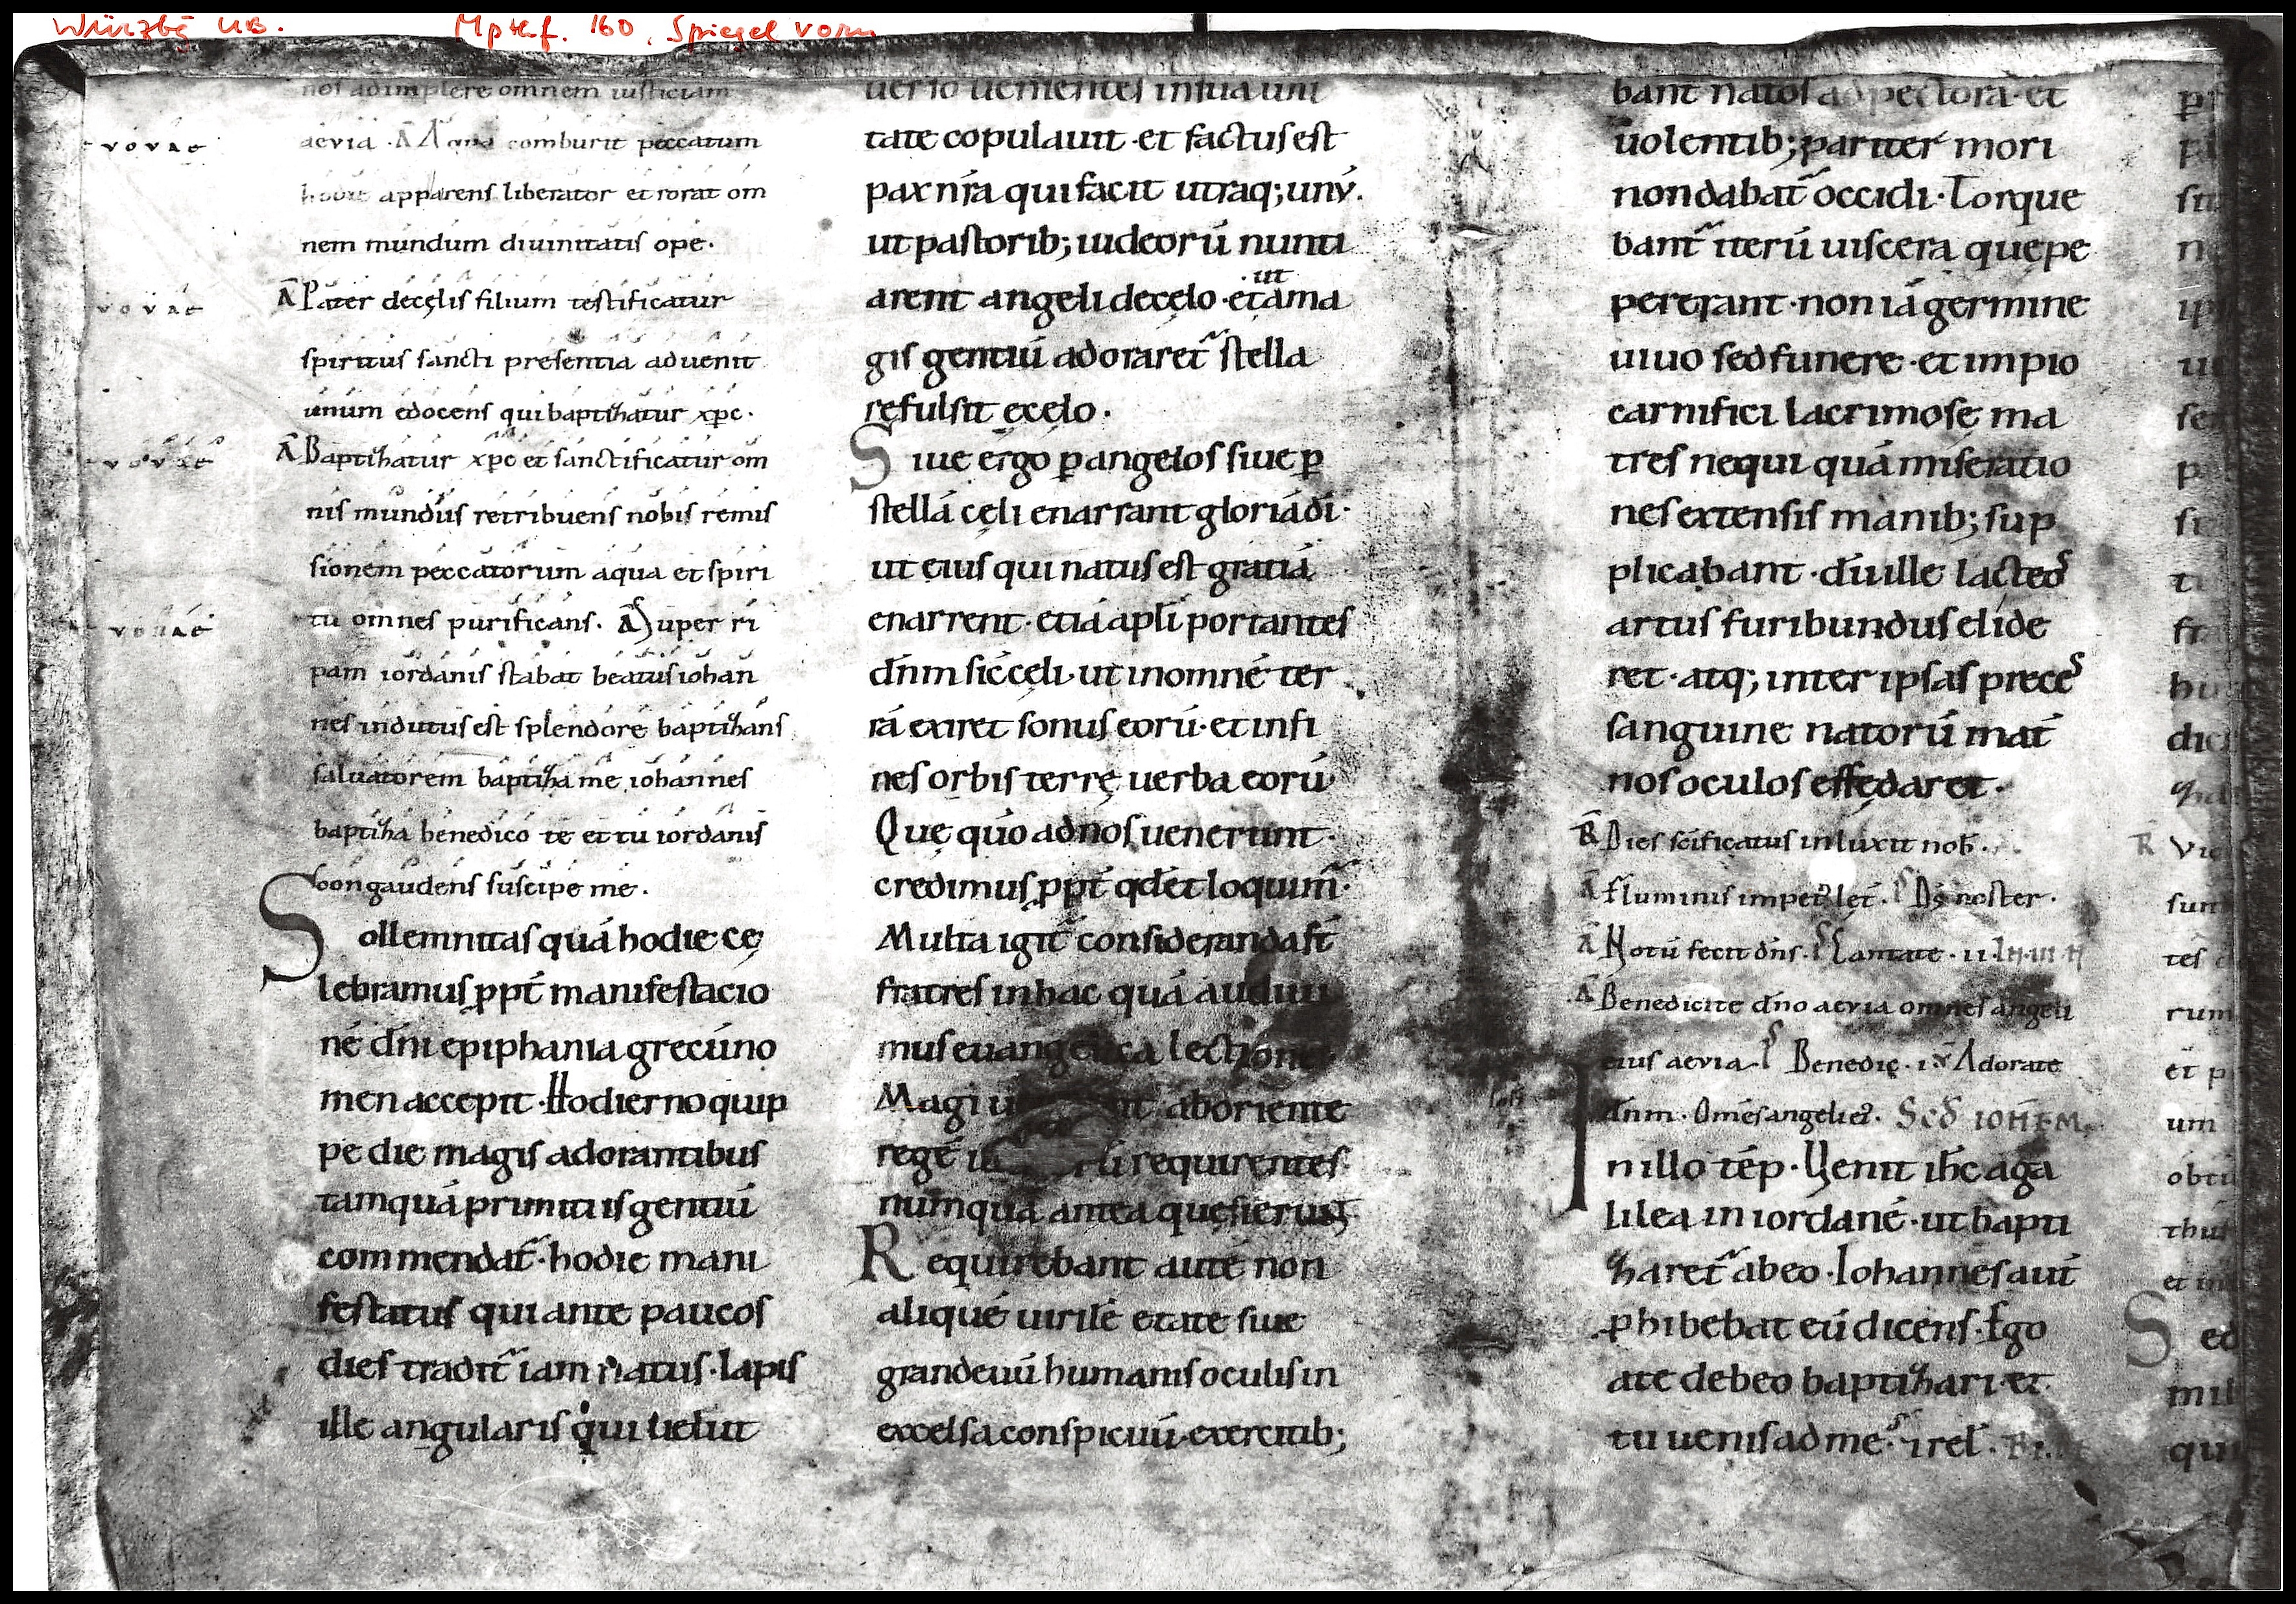 Würzbg UB. Mp th.f. 160, Spiegel vorn
nos adimplere omnem iusticiam
aevia · A Aqua comburit peccatum
hodie apparens liberator et rorat om
nem mundum diuinitatis ope·
A Pater de cęlis filium testificatur
spiritus sancti presentia aduenit
unum edocens qui baptizatur xp̄c·
A Baptizatur xp̄c et sanctificatur om
nis mundus retribuens nobis remis
sionem peccatorum aqua et spiri
tu omnes purificans· A Super ri
pam iordanis stabat beatus iohan
nes indutus est splendore baptizans
saluatorem baptiza me iohannes
baptiza benedico te et tu iordanis
congaudens suscipe me·
Sollemnitas quā hodie cę
lebramus ꝓpt̄ manifestacio
nē dn̄i epiphania grecū no
men accepit· Hodierno quip
pe die magis adorantibus
tamquā primitiis gentiū
commendat̄· hodie mani
festatus qui ante paucos
dies tradit̄ iam natus· lapis
ille angularis qui uelut
euouae
euouae
euouae
euouae
uerso uenientes in sua uni
tate copulauit· et factus est
pax nr̄a qui facit utraq; unū·
ut pastorib; iudeorū nunti
arent angeli de cęlo· et ut a ma
gis gentiū adoraret̄ stella
refulsit e cęlo·
Siue ergo ꝑ angelos siue ꝑ
stellā cęli enarrant gloriā dī·
ut eius qui natus est gratiā
enarrent· etiā apl̄i portantes
dn̄m sic cęli· ut in omnē ter
rā exiret sonus eorū· et in fi
nes orbis terrę uerba eorū·
Quę quo ad nos uenerunt·
credimus ꝓpt̄ qd̄ et loquim̄·
Multa igit̄ consideranda st̄
fratres in hac quā audiui
mus euangelica lectione
Magi ab oriente
regē requirentes
numquā antea quęsierunt
Requirebant autē non
aliquē uirilē ętate siue
grandeuū humanis oculis in
excelsa conspicuū· exercitib;
bant natos ad pectora· et
uolentib; pariter mori
non dabat̄ occidi· Torque
bant̄ iterū uiscera quę pe
pererant· non iā germine
uiuo sed funere· et impio
carnifici lacrimosę ma
tres nequiquā miseratio
nes extensis manib; sup
plicabant· dū ille lacteos
artus furibundus elide
ret· atq; inter ipsas preces
sanguine natorū mat̄
nos oculos effędaret·
R Dies sc̄ificatus inluxit nob̄·
A Fluminis impet; let̄· Ps Ds̄ noster·
A Notū fecit dn̄s· Ps Cantate· ii·
A Benedicite dn̄o aevia omnes angeli
eius aevia Ps Benedic· i· V Adorate
dn̄m· Om̄es angeli ei; Scd̄ IOHEM
In illo tēp· Uenit ih̄c a ga
lilea in iordanē· ut bapti
zaret̄ ab eo· Iohannes aut̄
ꝓhibebat eū dicens· Ego
a te debeo baptizari· et
tu uenis ad me; & rel̄·
R Vi
sun
tes
rum
et p
um
obtu
thu
et in
Sed
mil
qu